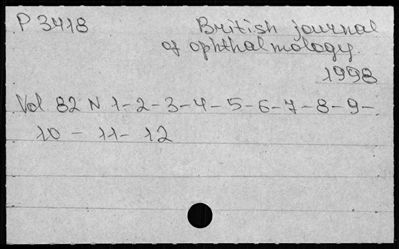 P 3418 British journal
of ophthalmology.
1998
Vol 82 N 1-2-3-4-5-6-7-8-9-
10 - 11 - 12